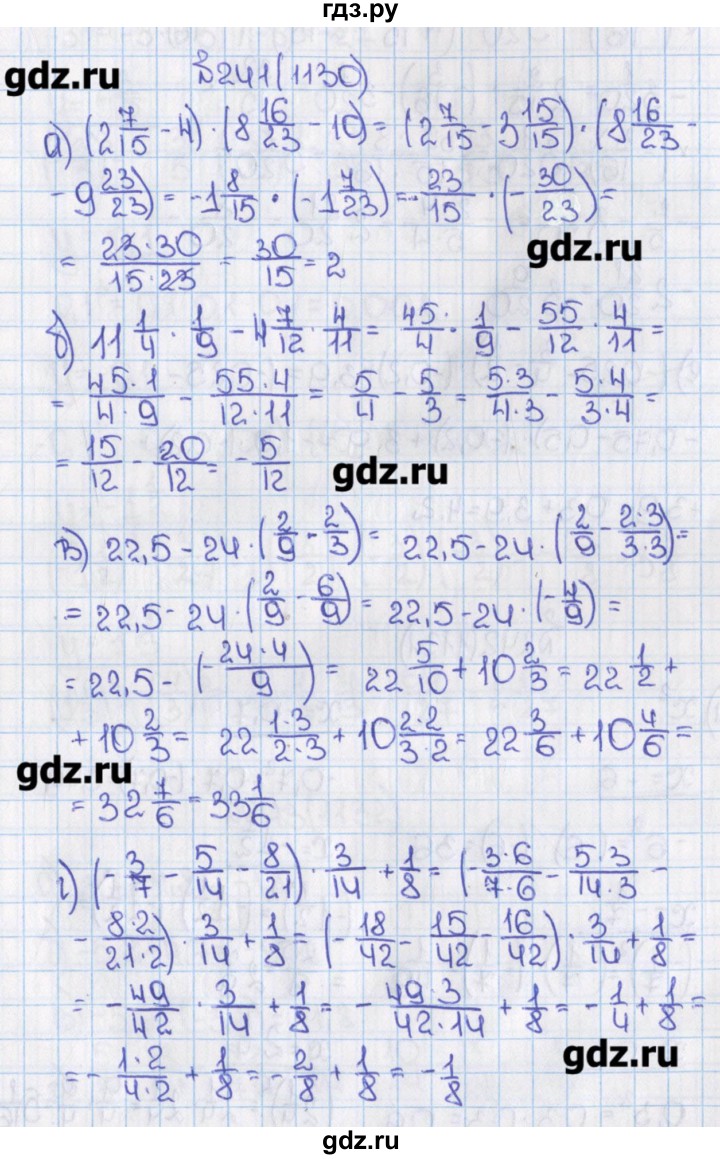 гдз.ру
gdz.ru
№241(1130)
а) (2 7/15 - 4) · (8 16/23 - 10) = (2 7/15 - 3 15/15) · (8 16/23 -
- 9 23/23) = -1 8/15 · (-1 7/23) = -23/15 · (-30/23) =
= 23·30/15·23 = 30/15 = 2
gdz.ru
б) 11 1/4 · 1/9 - 4 7/12 · 4/11 = 45/4 · 1/9 - 55/12 · 4/11 =
= 45·1/4·9 - 55·4/12·11 = 5/4 - 5/3 = 5·3/4·3 - 5·4/3·4 =
= 15/12 - 20/12 = - 5/12
gdz.ru
в) 22,5 - 24 · (2/9 - 2/3) = 22,5 - 24 · (2/9 - 2·3/3·3) =
= 22,5 - 24 · (2/9 - 6/9) = 22,5 - 24 · (-4/9) =
= 22,5 - (-24·4/9) = 22 5/10 + 10 2/3 = 22 1/2 +
+ 10 2/3 = 22 1·3/2·3 + 10 2·2/3·2 = 22 3/6 + 10 4/6 =
gdz.ru
= 32 7/6 = 33 1/6
г) (-3/7 - 5/14 - 8/21) · 3/14 + 1/8 = (-3·6/7·6 - 5·3/14·3 -
- 8·2/21·2) · 3/14 + 1/8 = (-18/42 - 15/42 - 16/42) · 3/14 + 1/8 =
= -49/42 · 3/14 + 1/8 = - 49·3/42·14 + 1/8 = -1/4 + 1/8 =
gdz.ru
= -1·2/4·2 + 1/8 = -2/8 + 1/8 = -1/8
gdz.ru